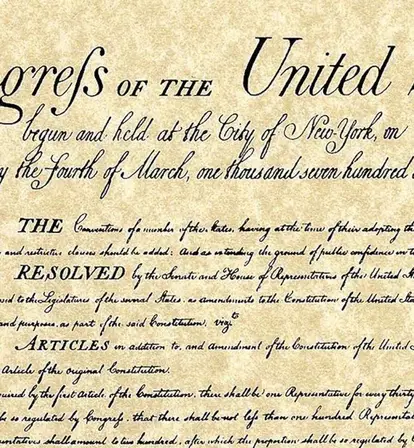 greſs OF THE United
begun and held at the City of New-York, on
y the Fourth of March, one thousand seven hundred
THE Conventions of a number of the States, having at the time of their adopting th
and restrictive clauses should be added: And as extending the ground of public confidence in
RESOLVED by the Senate and House of Representatives of the United Stat
sed to the Legislatures of the several States, as amendments to the Constitution of the United Stat
and purposes, as part of the said Constitution; vizt
ARTICLES in addition to, and Amendment of the Constitution of the United S
Article of the original Constitution.
uired by the first Article of the Constitution, there shall be one Representative for every thirty
be so regulated by Congreſs, that there shall be not leſs than one hundred Representat
entatives shall amount to two hundred, after which the proportion shall be so regulated by